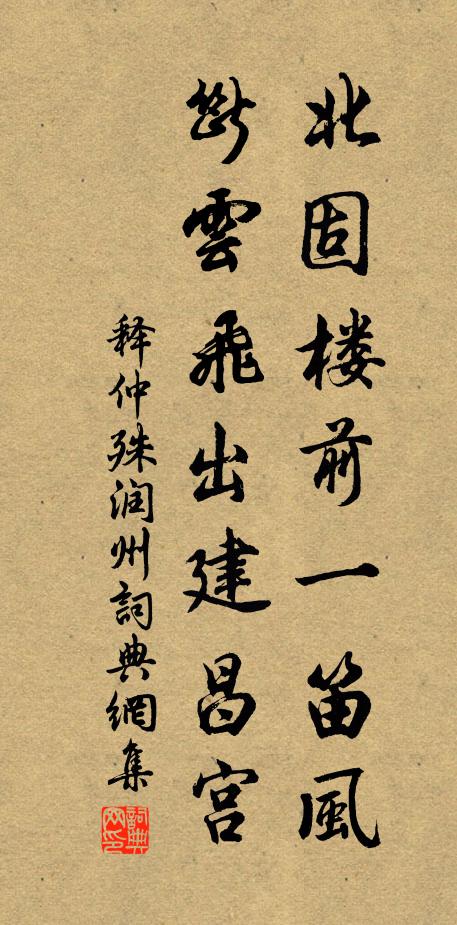 北固楼前一笛風
斷雲飛出建昌宫
释仲殊润州詞典網集
詞典网印